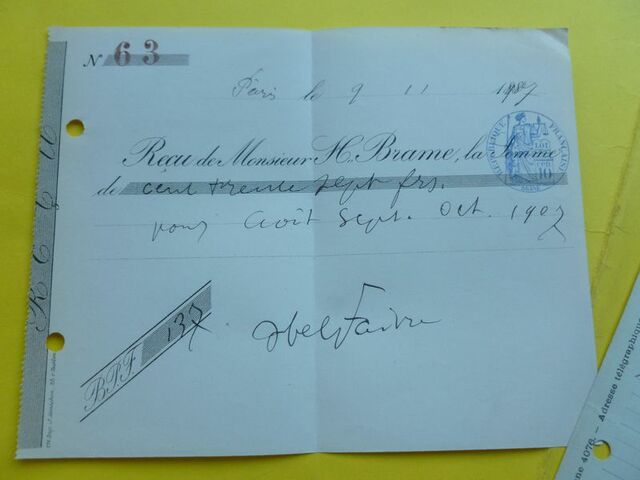 N 63
Paris le 9 11 1907
Reçu de Monsieur H. Brame, la Somme
de cent trente sept frs.
pour Août Sept. Oct. 1907
B.P.F 137
Abel Faivre
REÇU
RÉPUBLIQUE FRANÇAISE
LOI
10
ne 4076. — Adresse télégraphique